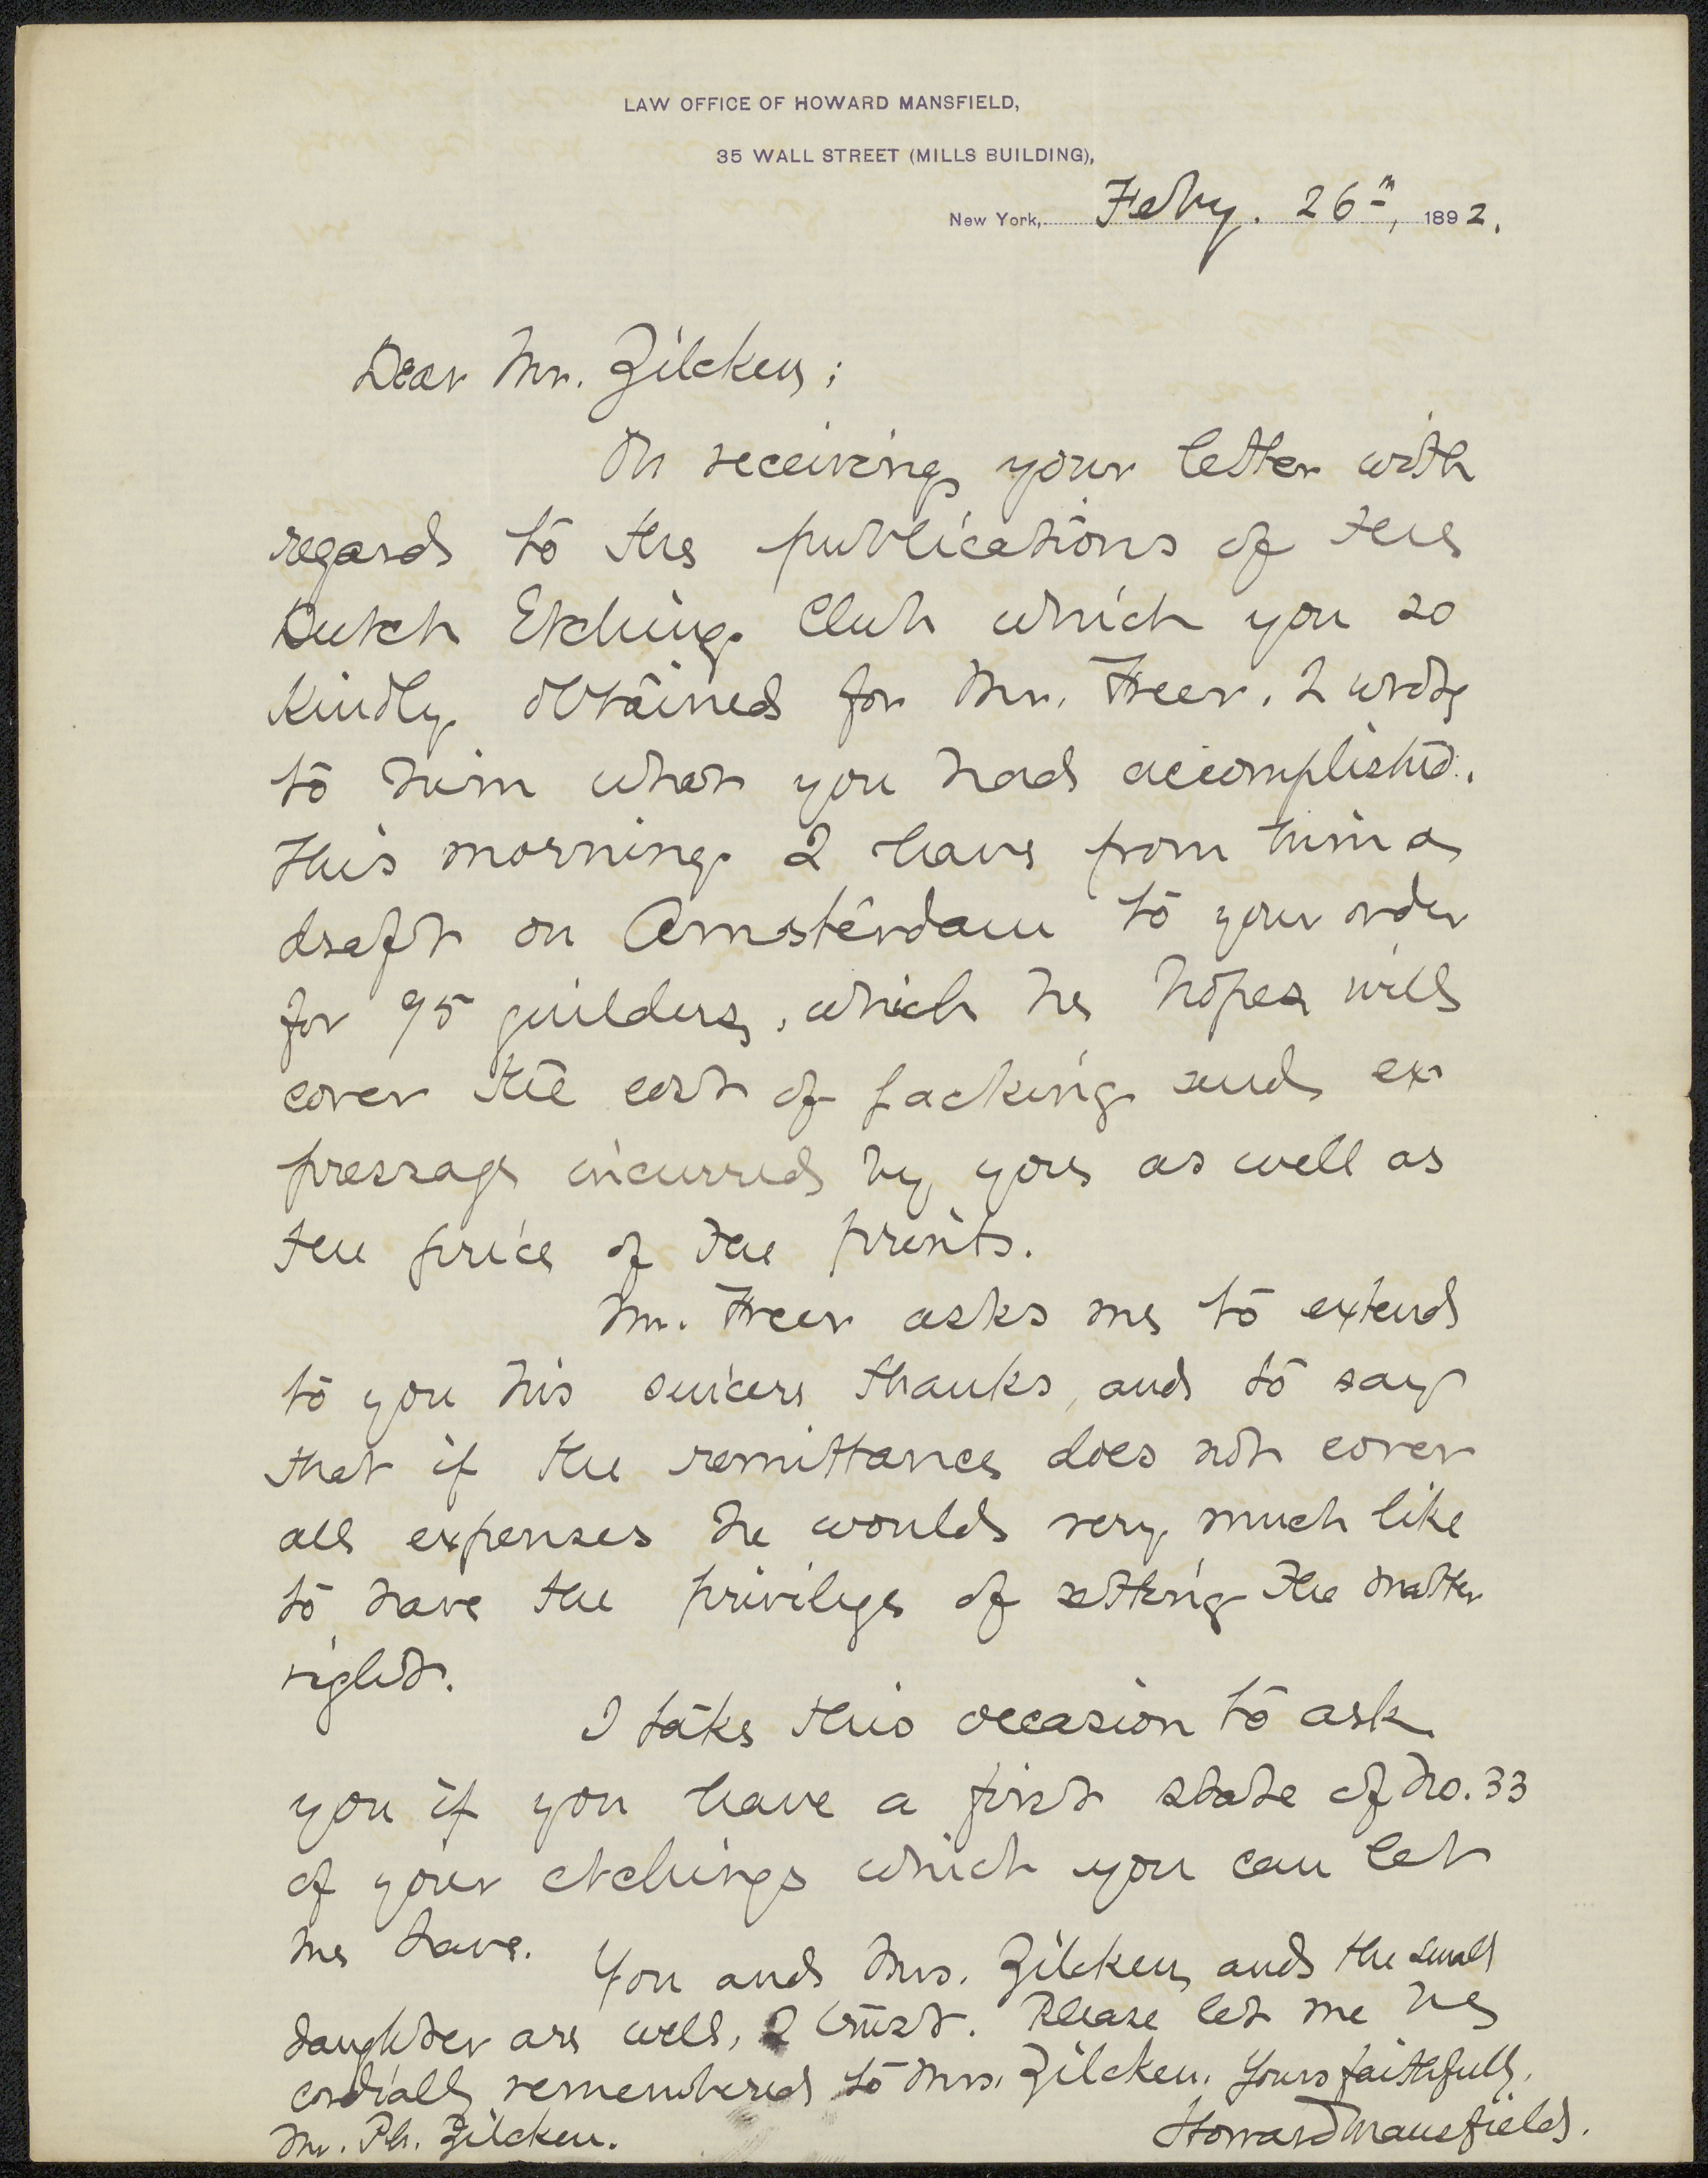 LAW OFFICE OF HOWARD MANSFIELD,
35 WALL STREET (MILLS BUILDING),
New York, Feby. 26th, 1892.
Dear Mr. Zilcken;
On receiving your letter with
regard to the publications of the
Dutch Etching Club which you so
kindly obtained for Mr. Freer, I wrote
to him what you had accomplished.
This morning I have from him a
draft on Amsterdam to your order
for 95 guilders, which he hopes will
cover the cost of packing and ex
pressage incurred by you as well as
the price of the prints.
Mr. Freer asks me to extend
to you his sincere thanks, and to say
that if the remittance does not cover
all expenses he would very much like
to have the privilege of setting the matter
right.
I take this occasion to ask
you if you have a first state of No. 33
of your etchings which you can let
me have.
You and Mrs. Zilcken and the small
daughter are well, I trust. Please let me be
cordially remembered to Mrs. Zilcken. Yours faithfully,
Mr. Ph. Zilcken.
Howard Mansfield.